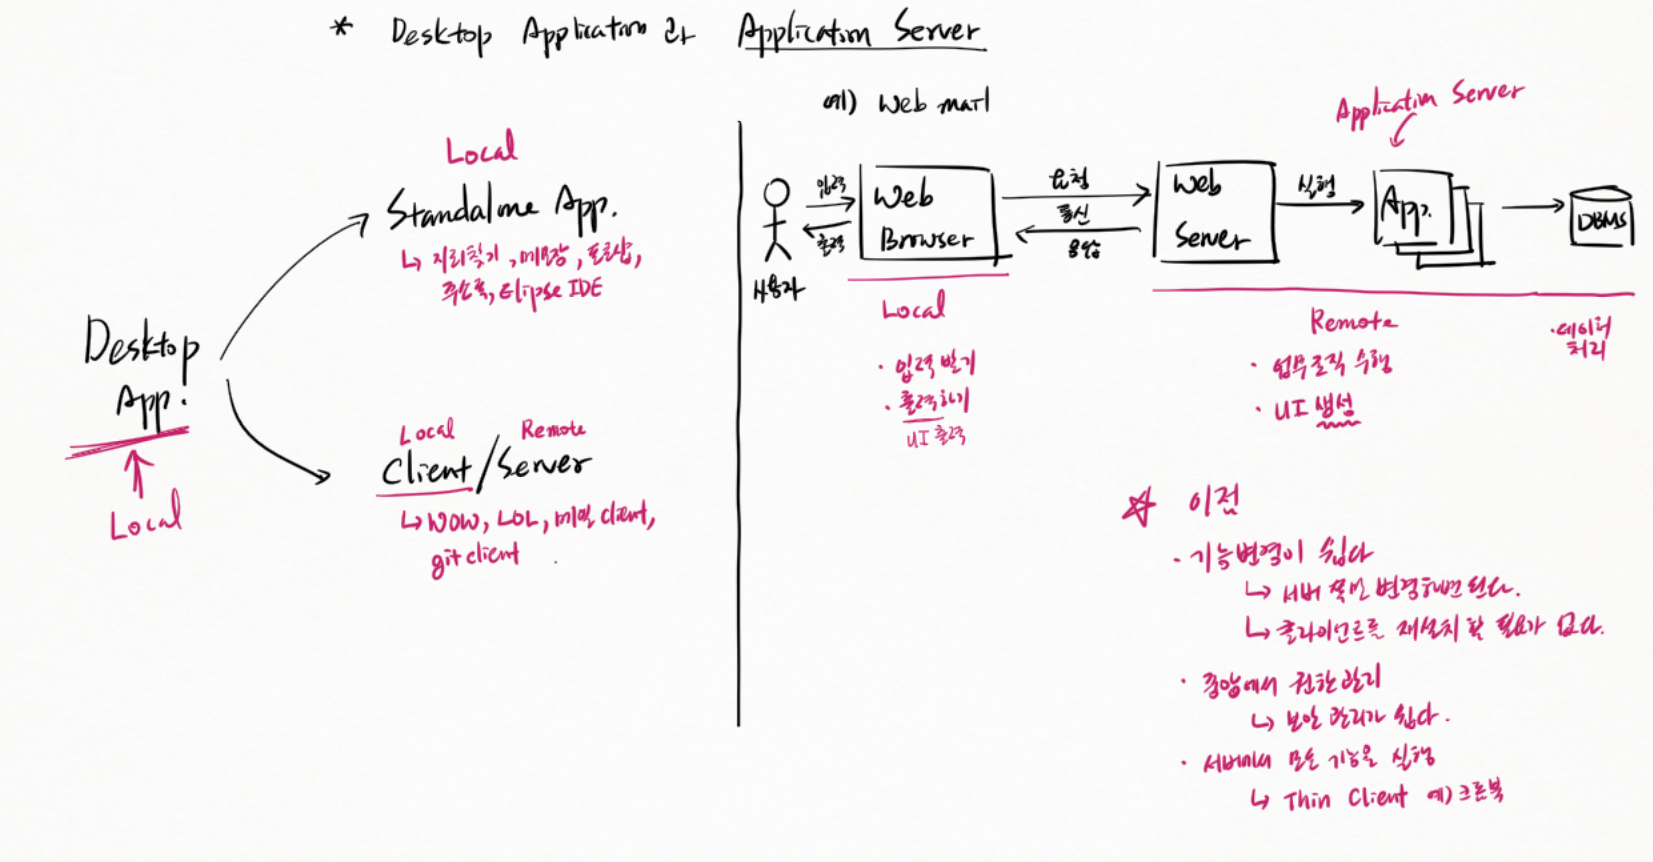 * Desktop Application 과 Application Server
예) Web mail
Local
Standalone App.
↳ 지뢰찾기, 메모장, 포토샵,
주소록, Eclipse IDE
Desktop
App.
Local
Local Remote
Client/Server
↳ WOW, LOL, 메일 client,
git client
Application Server
사용자
입력
출력
Web
Browser
요청
통신
응답
Web
Server
실행
App.
DBMS
Local
· 입력 받기
· 출력하기
UI 출력
Remote
· 업무로직 수행
· UI 생성
· 데이터
처리
☆ 이점
· 기능변경이 쉽다
↳ 서버 쪽만 변경하면 된다.
↳ 클라이언트를 재설치 할 필요가 없다.
· 중앙에서 권한관리
↳ 보안 관리가 쉽다.
· 서버에서 모든 기능을 실행
↳ Thin Client 예) 크롬북